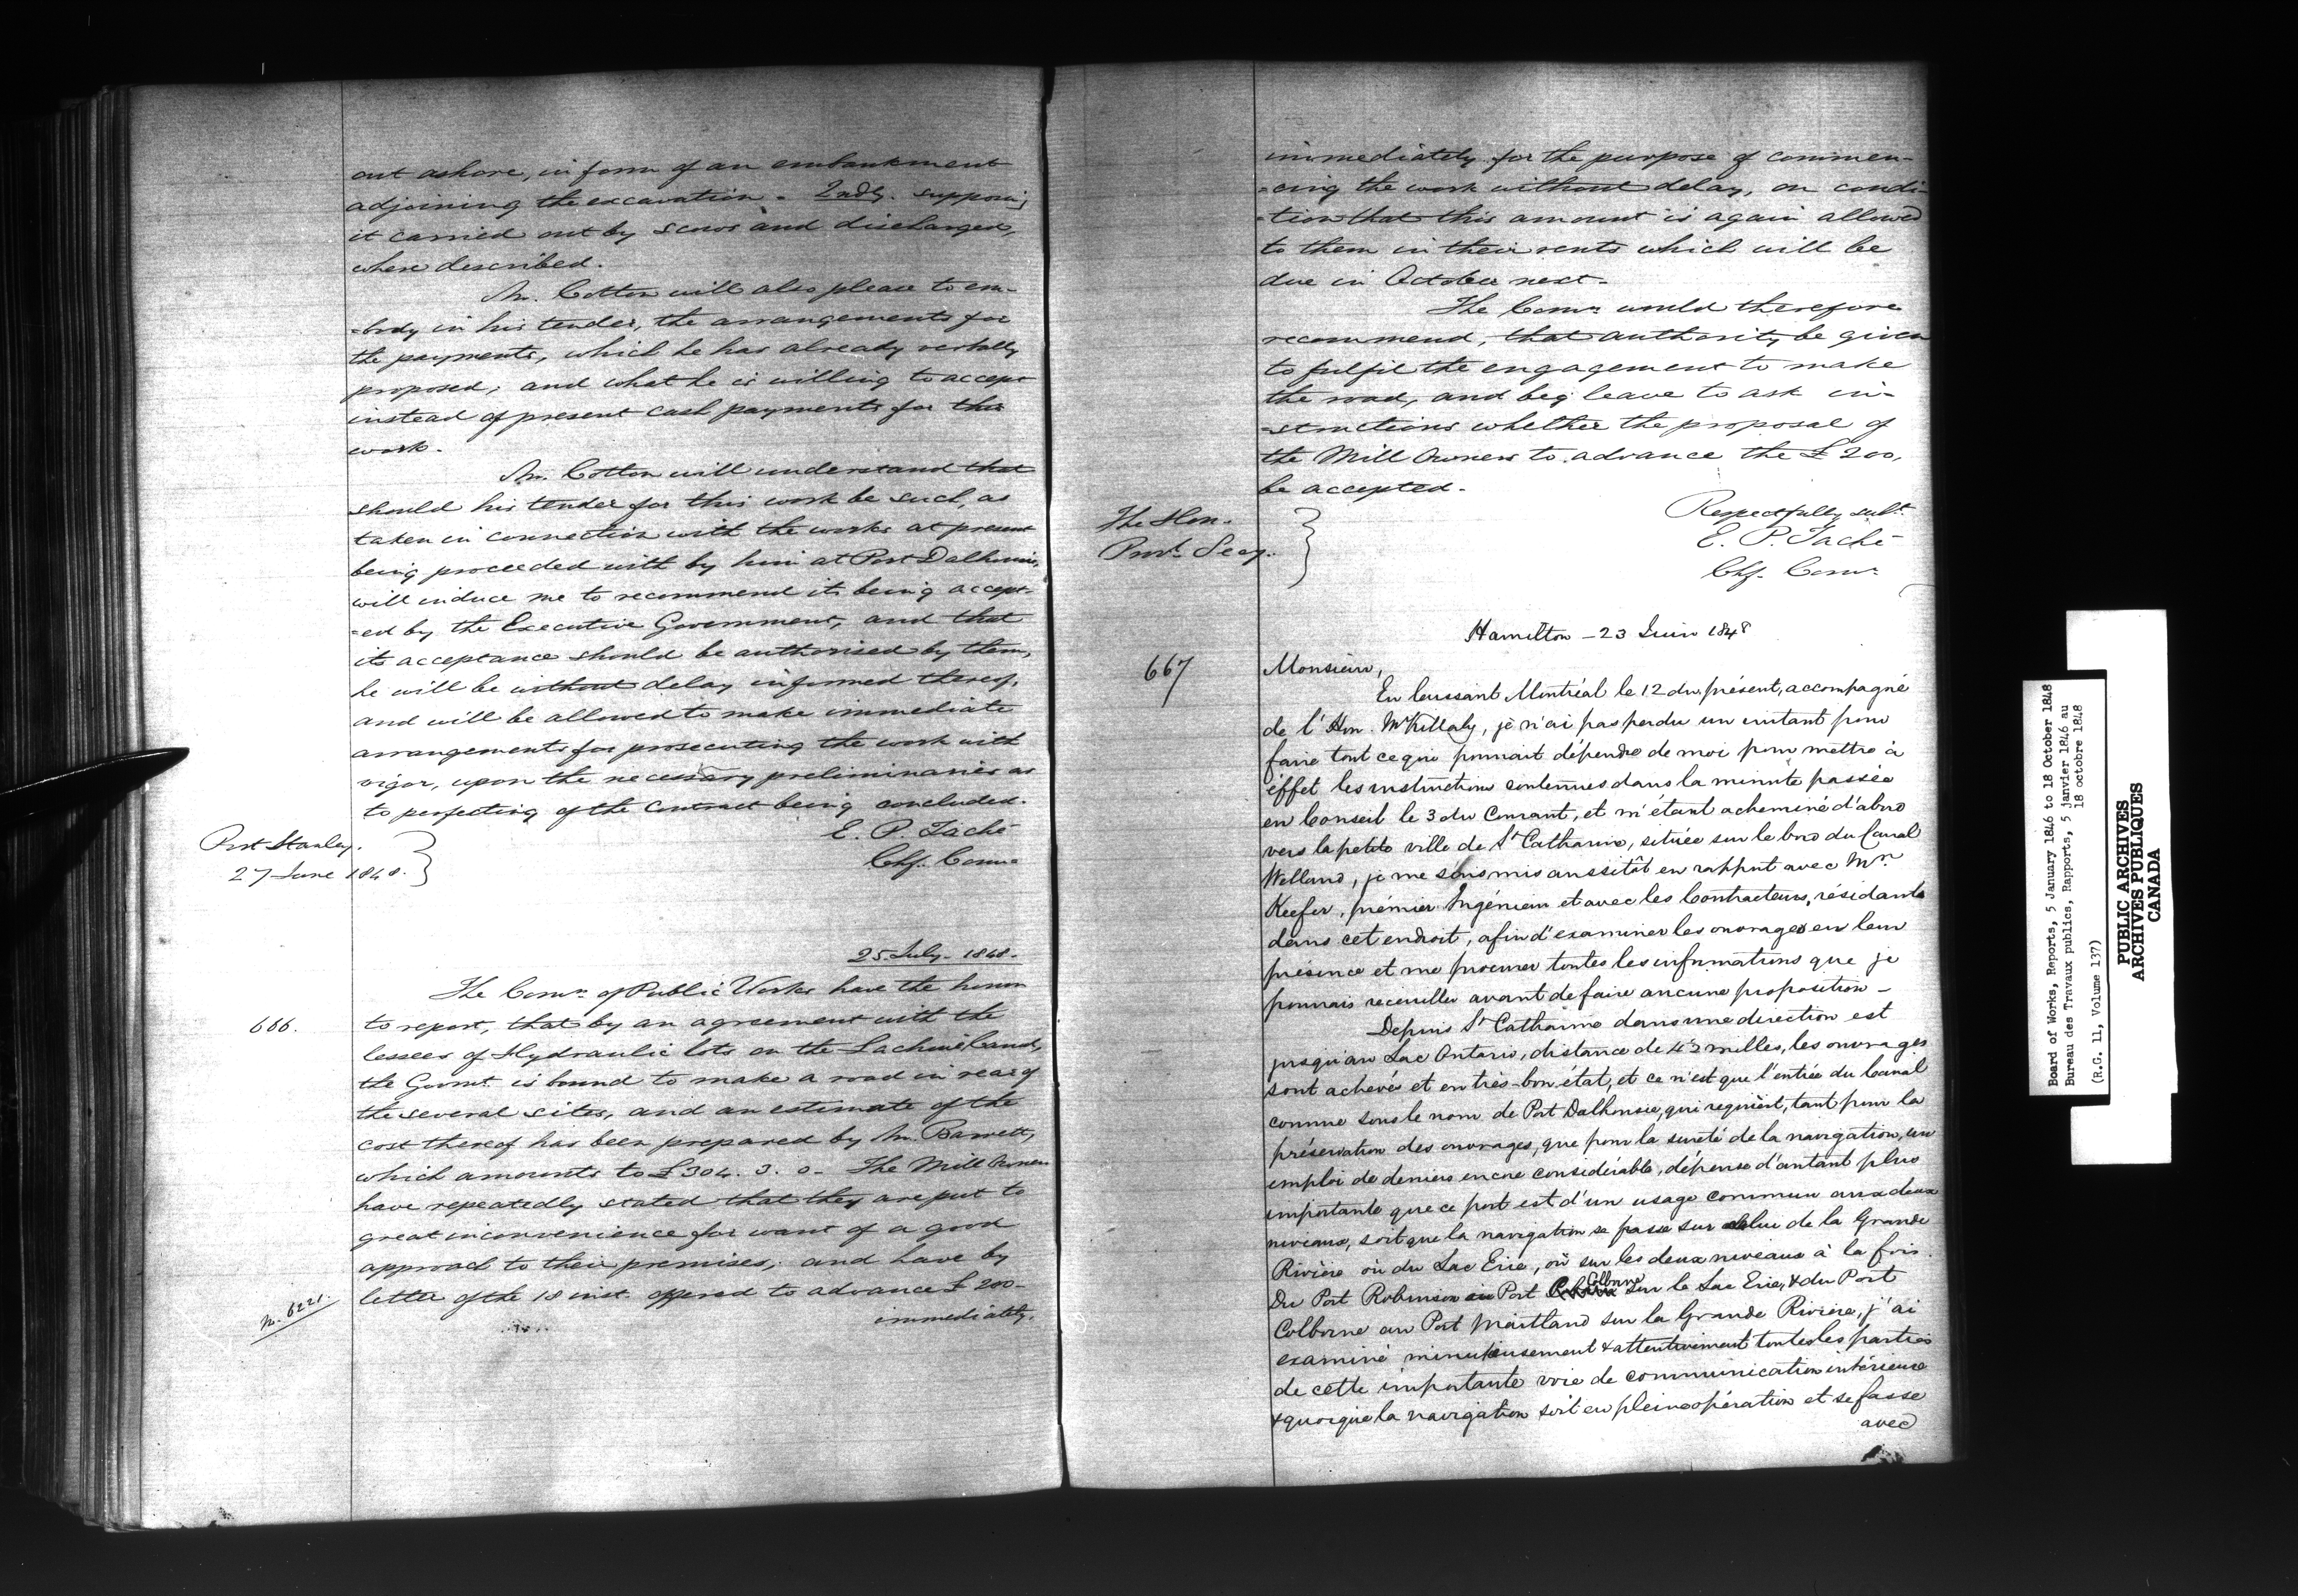 out ashore, in form of an embankment
adjoining the excavation - 2ndly. supposing
it carried out by scows and discharged,
where described.
Mr. Cotton will also please to em-
-body in his tender, the arrangements for
the payments, which he has already verbally
proposed; and what he is willing to accept
instead of present cash payments for this
work.
Mr. Cotton will understand that
should his tender for this work be such, as
taken in connection with the works at present
being proceeded with by him at Port Dalhousie,
will induce me to recommend its being accept-
-ed by the Executive Government, and that
its acceptance should be authorised by them,
he will be without delay informed thereof,
and will be allowed to make immediate
arrangements for prosecuting the work with
vigor, upon the necessary preliminaries as
to perfecting of the Contract being concluded.
E. P. Taché
Chf. Comr
Port Stanley.
27 June 1848.
25 July. 1848.
The Comrs of Public Works have the honor
666.
to report, that by an agreement with the
lessees of Hydraulic lots on the Lachine Canal,
the Govmt. is bound to make a road in rear of
the several sites, and an estimate of the
cost thereof has been prepared by Mr. Barrett,
which amounts to £304. 3. 0 - The Mill Owners
have repeatedly stated that they are put to
great inconvenience for want of a good
approach to their premises; and have by
letter of the 18 inst. offered to advance £200-
No. 6221.
immediately.
immediately for the purpose of commen-
-cing the work without delay, on condi-
-tion that this amount is again allowed
to them in their rents which will be
due in October next -
The Comrs would therefore
recommend, that authority be given
to fulfil the engagement to make
the road, and beg leave to ask in-
-structions whether the proposal of
the Mill Owners to advance the £200,
be accepted -
Respectfully subt.
The Hon.
Provl Secy.
E. P. Taché
Chf. Comr
Hamilton - 23 Juin 1848
667
Monsieur,
En laissant Montréal le 12 du présent, accompagné
de l'Hon. Mr Killaly, je n'ai pas perdu un instant pour
faire tout ce qui pouvait dépendre de moi pour mettre à
éffet les instructions contenues dans la minute passée
en Conseil le 3 du Courant, et m'étant acheminé d'abord
vers la petite ville de St Catharine, située sur le bord du Canal
Welland, je me suis mis aussitôt en rapport avec Mr
Keefer, prémier Ingénieur et avec les Contracteurs, résidants
dans cet endroit, afin d'examiner les ouvrages en leur
présence et me procurer toutes les informations que je
pouvais receuiller avant de faire aucune proposition -
Depuis St Catharine dans une direction est
jusqu'au Lac Ontario, distance de 4½ milles, les ouvrages
sont achevés et en très-bon état, et ce n'est que l'entrée du Canal
connue sous le nom de Port Dalhousie, qui requièrt, tant pour la
préservation des ouvrages, que pour la sureté de la navigation, un
emploi de deniers encore considérable, dépense d'autant plus
importante que ce port est d'un usage commun aux deux
niveaux, soit que la navigation se passe sur celui de la Grande
Rivière où du Lac Erie, où sur les deux niveaux à la fois.
Du Port Robinson au Port Colborne sur le Lac Erie, & du Port
Colborne au Port Maitland sur la Grande Rivière, j'ai
examiné minutieusement & attentivement toutes les parties
de cette importante voie de communication intérieure
& quoique la navigation soit en pleine opération et se fasse
avec
Board of Works, Reports, 5 January 1846 to 18 October 1848
Bureau des Travaux publics, Rapports, 5 janvier 1846 au
18 octobre 1848
(R.G. 11, Volume 137)
PUBLIC ARCHIVES
ARCHIVES PUBLIQUES
CANADA